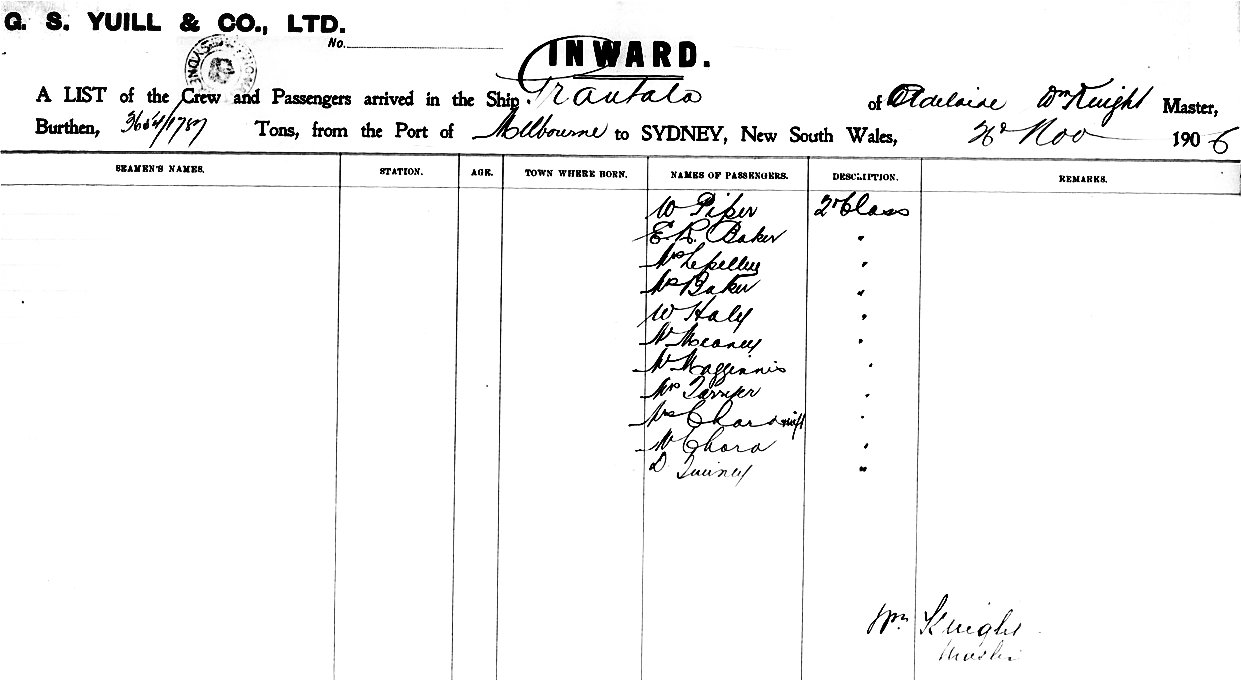 G. S. YUILL & CO., LTD.
No.
INWARD.
A LIST of the Crew and Passengers arrived in the Ship Grantala of Adelaide Wm Knight Master,
Burthen, Tons, from the Port of Melbourne to SYDNEY, New South Wales, Nov 1906
SEAMEN'S NAMES. STATION. AGE. TOWN WHERE BORN. NAMES OF PASSENGERS. DESCRIPTION. REMARKS.
W Piper 2r Class
E R. Baker "
Mrs Lepelley "
Mrs Baker "
W Haly "
Meaney "
Magginnis "
Mrs "
Mrs Chara "
Chara "
D Quiney "
Wm Knight
Master